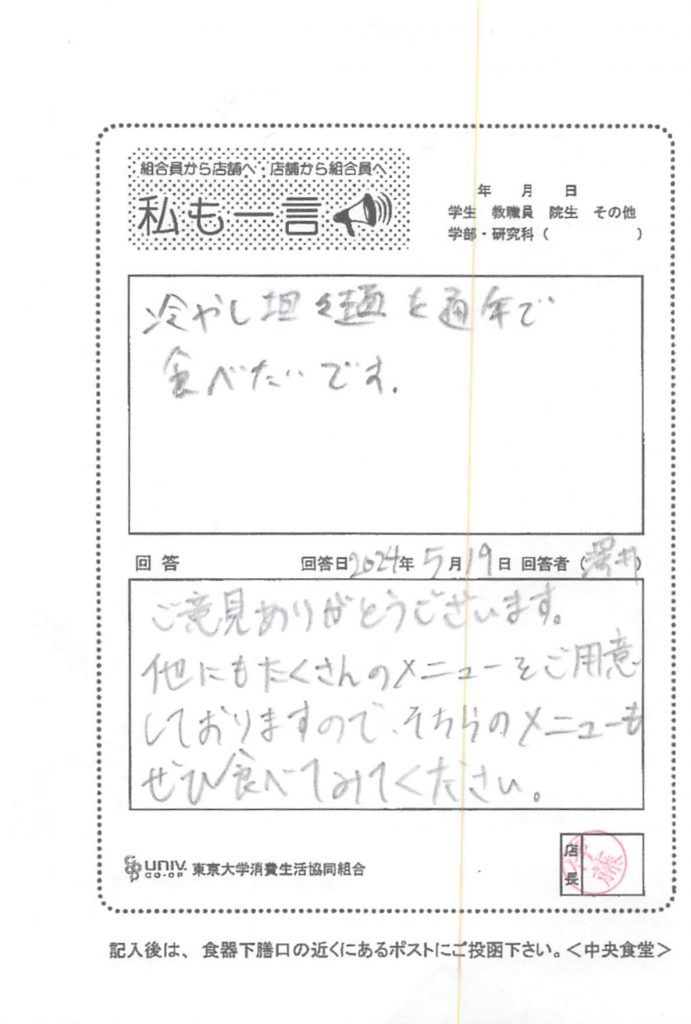 組合員から店舗へ・店舗から組合員へ
私も一言
年 月 日
学生 教職員 院生 その他
学部・研究科( )
冷やし坦々麺を通年で
食べたいです.
回答 回答日2024年5月19日 回答者(澤井)
ご意見ありがとうございます。
他にもたくさんのメニューをご用意
しておりますので、そちらのメニューも
ぜひ食べてみてください。
UNIV. CO-OP 東京大学消費生活協同組合
店長
記入後は、食器下膳口の近くにあるポストにご投函下さい。<中央食堂>